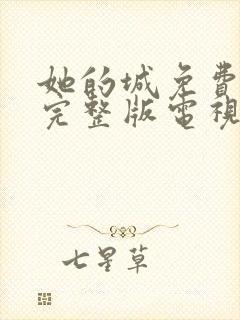 她的城免費
完整版電視
七星草